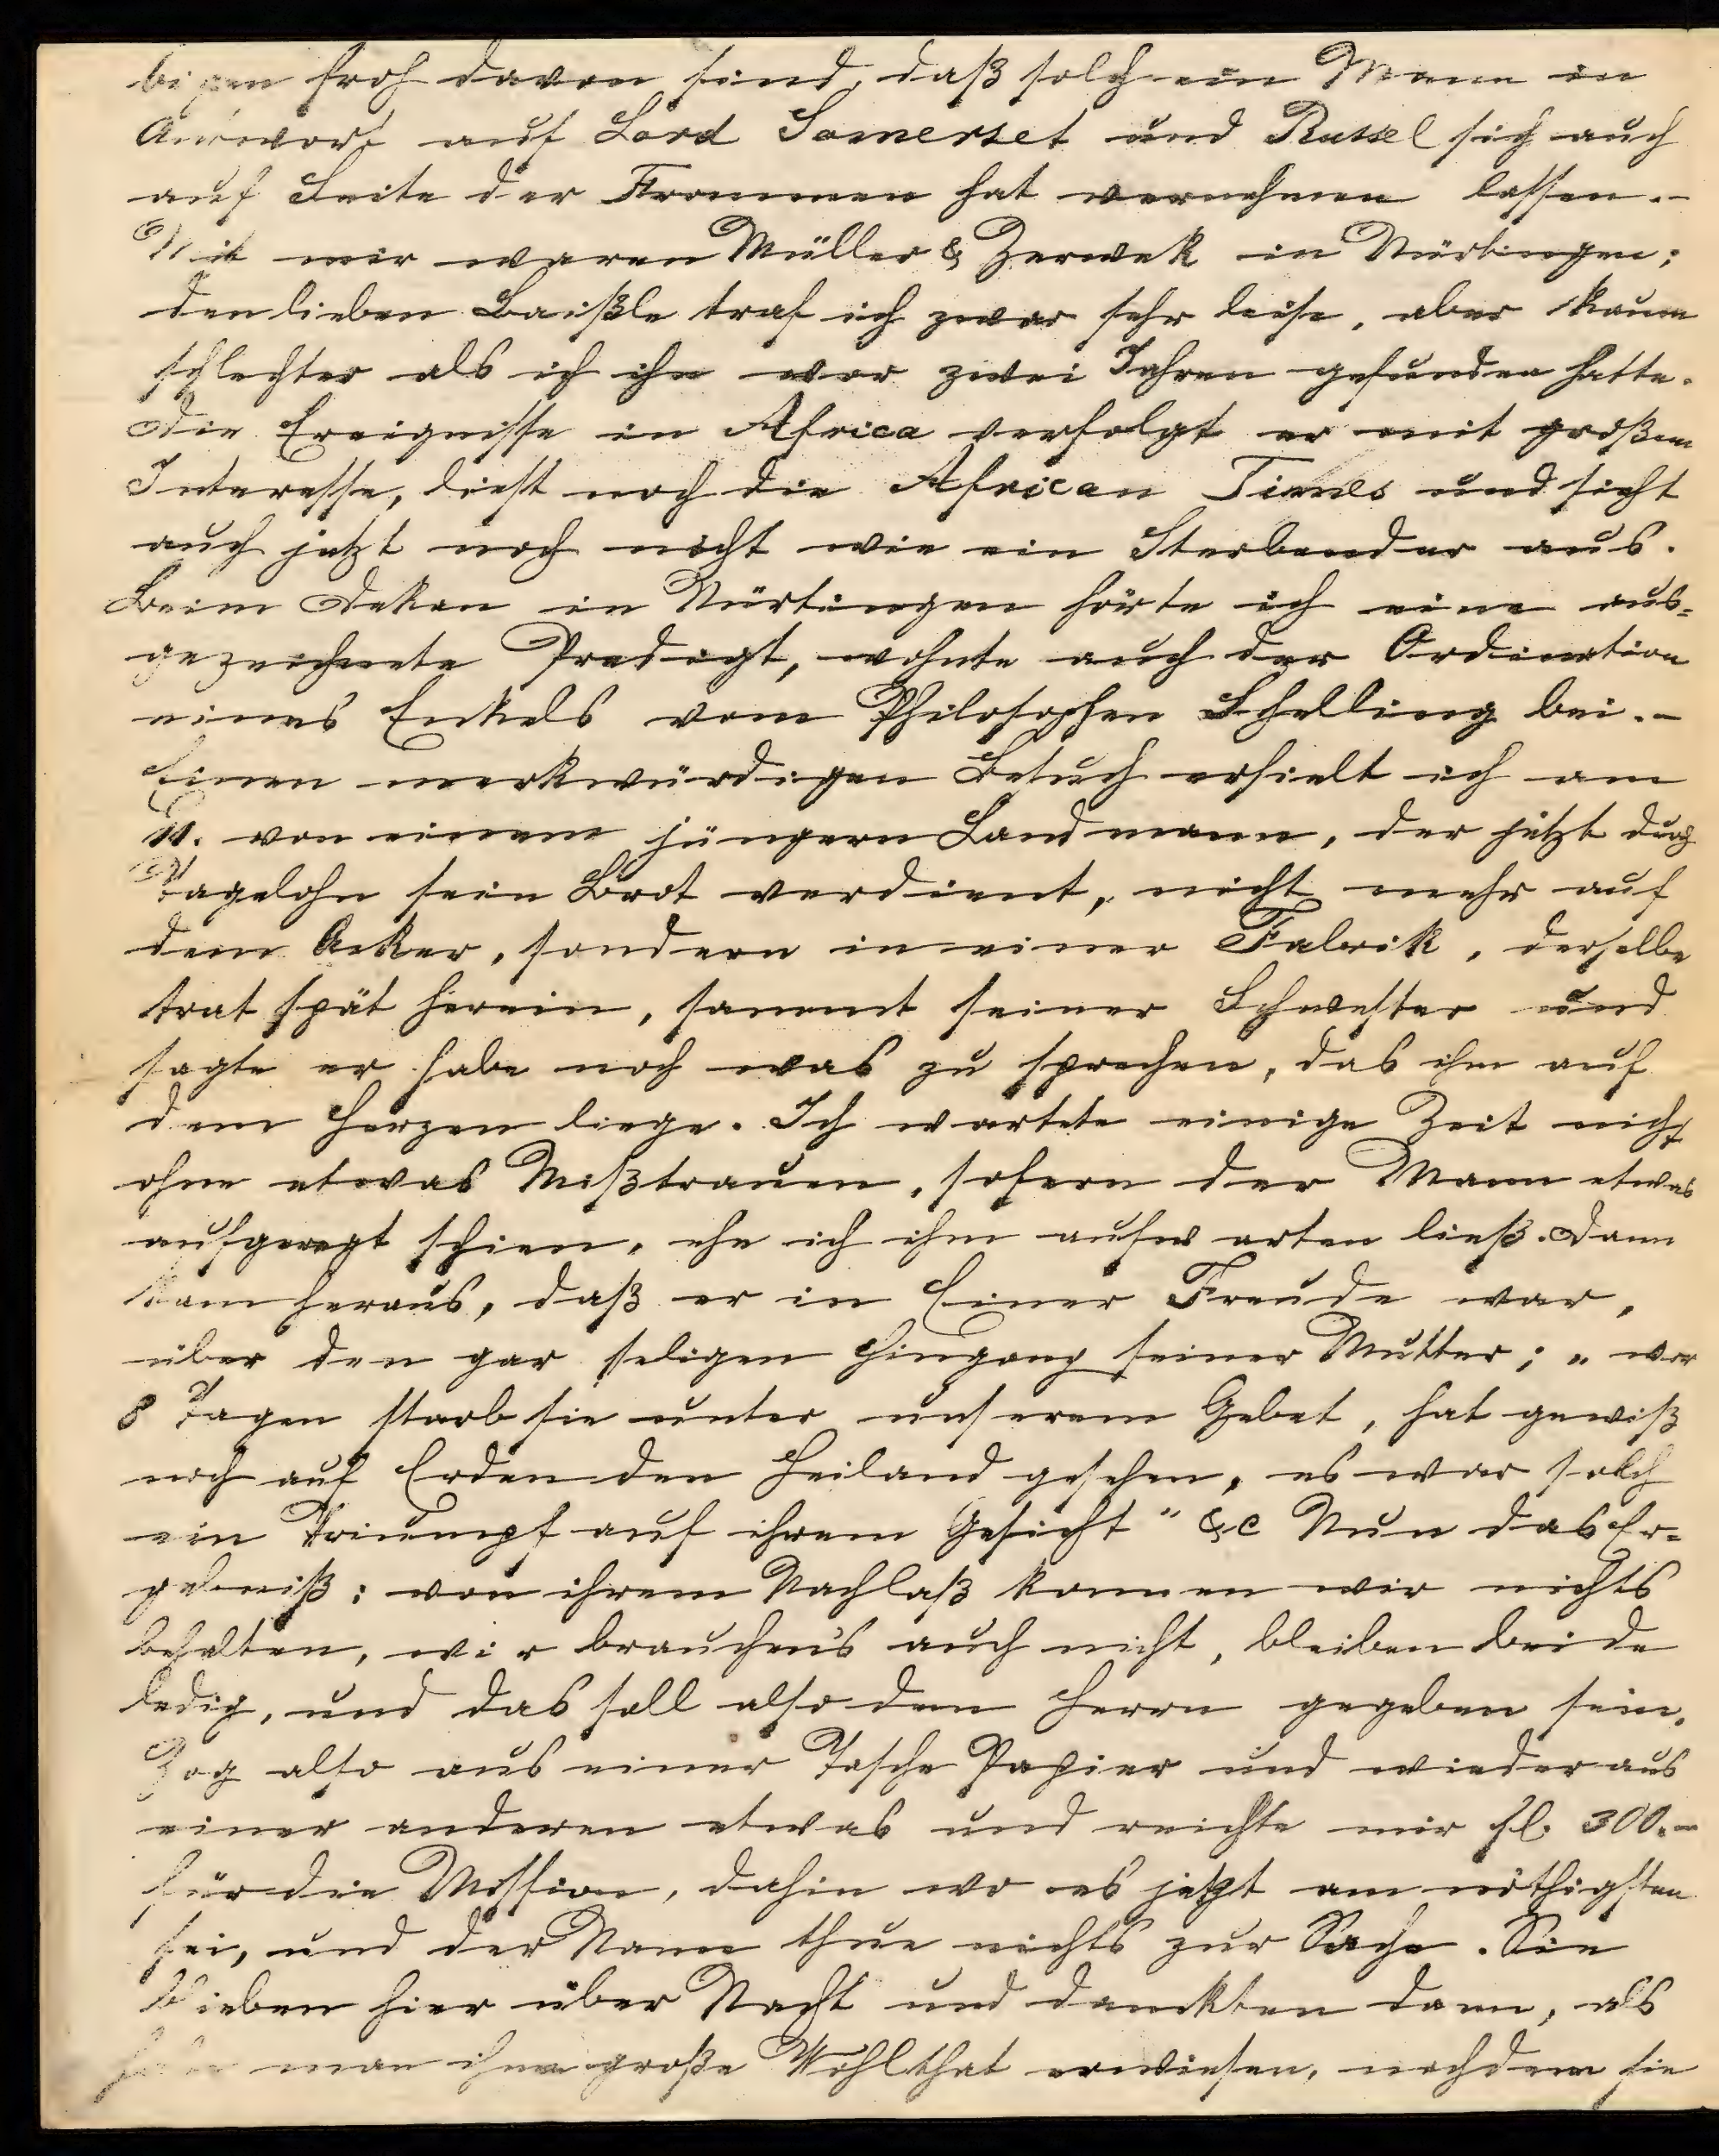 bigen froh davon sind, daß solch ein Mann in
Antwort auf Lord Somerset und Russel sich auch
auf Seite der Frommen hat vernehmen lassen.-
Mit mir waren Müller & Zerwek in Nürtingen;
den lieben Baißle traf ich zwar sehr leise, aber kaum
schlechter als ich ihn vor zwei Jahren gefunden hatte.
Die Ereignisse in Africa verfolgt er mit großem
Interesse, liest noch die African Times und sieht
auch jetzt noch nicht wie ein Sterbender aus.
Beim Dekan in Nürtingen hörte ich eine aus=
gezeichnete Predigt, wohnte auch der Ordination
eines Enkels vom Philosophen Schelling bei.-
Einen merkwürdigen Besuch erhielt ich am
11. von einem jüngern Landmann, der jetzt durch
Tagelohn sein Brot verdient, nicht mehr auf
dem Acker, sondern in einer Fabrik, derselbe
trat spät herein, sammt seiner Schwester und
sagte er habe noch was zu sprechen, das ihm auf
dem Herzen liege. Ich wartete einige Zeit nicht
ohne etwas Mißtrauen, sofern der Mann etwas
aufgeregt schien, ehe ich ihm aufwarten ließ. Dann
kam heraus, daß er in Einer Freude war,
über den gar seligen Hingang seiner Mutter; „ vor
8 Tagen starb sie unter unserem Gebet, hat gewiß
noch auf Erden den Heiland gesehen, es war solch
ein Triumpf auf ihrem Gesicht" &c Nun das Er=
gebniß: von ihrem Nachlaß konnen wir nichts
behalten, wir brauchen's auch nicht, bleiben beide
ledig, und das soll also dem Herrn gegeben sein.
Zog also aus einer Tasche Papier und wieder aus
einer anderen etwas und reichte mir fl. 300.-
für die Mission, dahin wo es jetzt am nöthigsten
sei, und der Name thue nichts zur Sache. Sie
blieben hier über Nacht und danckten dann, als
habe man ihnen große Wohlthat erwiesen, nachdem sie